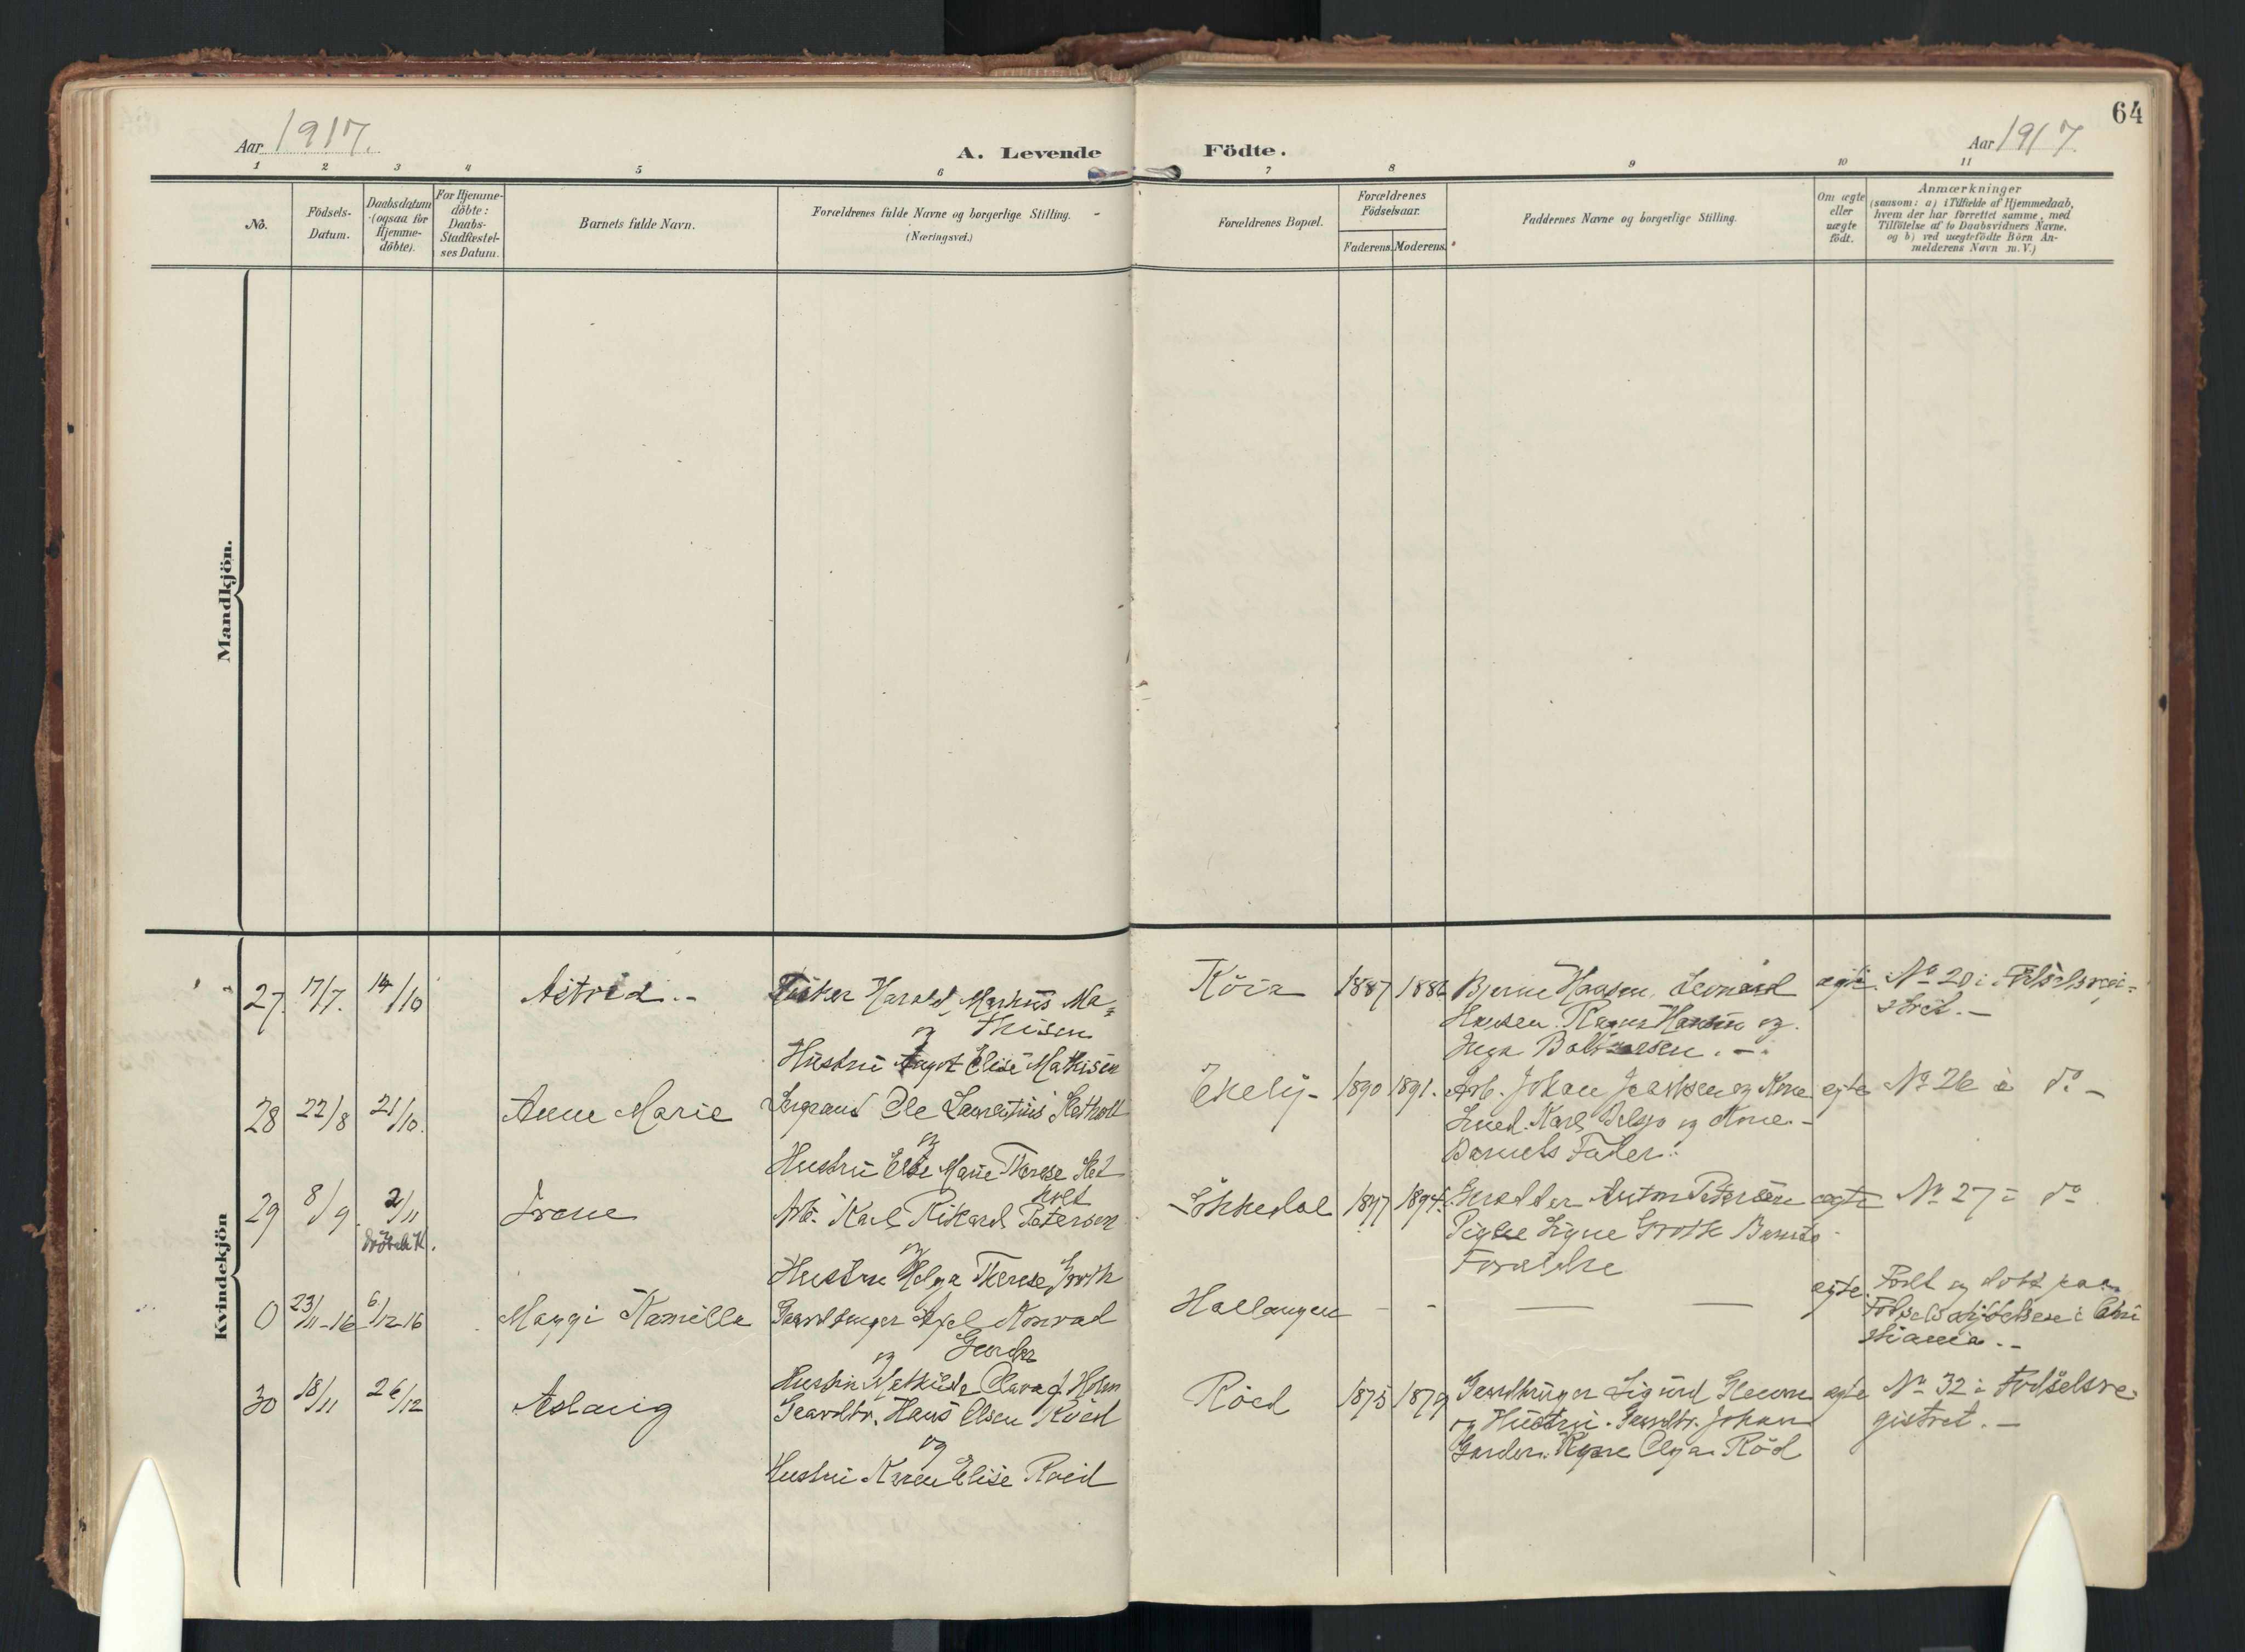 64
Aar 1917.
A. Levende Födte.
Aar 1917.
1 2 3 4 5 6 7 8 9 10 11
No.
Födsels-
Datum.
Daabsdatum
(ogsaa for
Hjemme-
döbte).
For Hjemme-
döbte:
Daabs-
Stadfæstel-
ses Datum.
Barnets fulde Navn.
Forældrenes fulde Navne og borgerlige Stilling.
(Næringsvei.)
Forældrenes Bopæl.
Forældrenes
Födselsaar.
Faderens. Moderens.
Faddernes Navne og borgerlige Stilling.
Om ægte
eller
uægte
födt.
Anmærkninger
(saasom: a) i Tilfælde af Hjemmedaab,
hvem der har forrettet samme, med
Tilföielse af to Daabsvidners Navne,
og b) ved uægtefödte Börn An-
melderens Navn m. V.)
Mandkjön.
Kvindekjön
27. 17/7. 14/10
Astrid.-
Harald Markus Ma=
og thisen
Hustru Elise Mathisen
1887
Bjerne Hansen.
Hansen. Hansen og
Inga
No 20 i Födselsregi=
stret.-
28 22/8 21/10.
Anne Marie
Ole Laurentius
og
Hustru Else Marie Therese
Ekely- 1890 1891.
Arb. Johan og Kone
Smed. Karl og Kone.-
Barnets Fader.
egte No 26 i do -
29 8/9. 2/11
Dröbak K.
Irene
Arb. Karl Rikard Petersen
og
Hustru Helga Therese
1897
Anton Petersen
Pige Signe Groth Barnets
Forældre
ægte No 27 i do
0 23/11-16 6/12-16
Maggi Kamilla
Gaardbruger Axel Konrad
og Garder
Hustru Mathilde f. Holm
Hallangen - - —— ——
egte.
Födt og döbt paa
Födselsstiftelsen i Chri
stiania.-
30 18/11 26/12
Aslaug
Gaardbr. Hans Olsen Röed
og
Hustru Karen Elise Röed
Röed 1875 1879
Gaardbruger Sigurd
og Hustru. Gaardbr. Johan
Garder. Olga Röd
egte No 32 i Födselsre
gistret.-